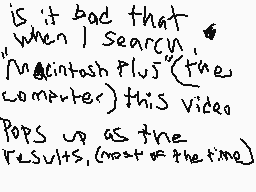 is it bad that
when I search
"Macintosh Plus" (the
computer) this video
POPS up as the
results, (most of the time)